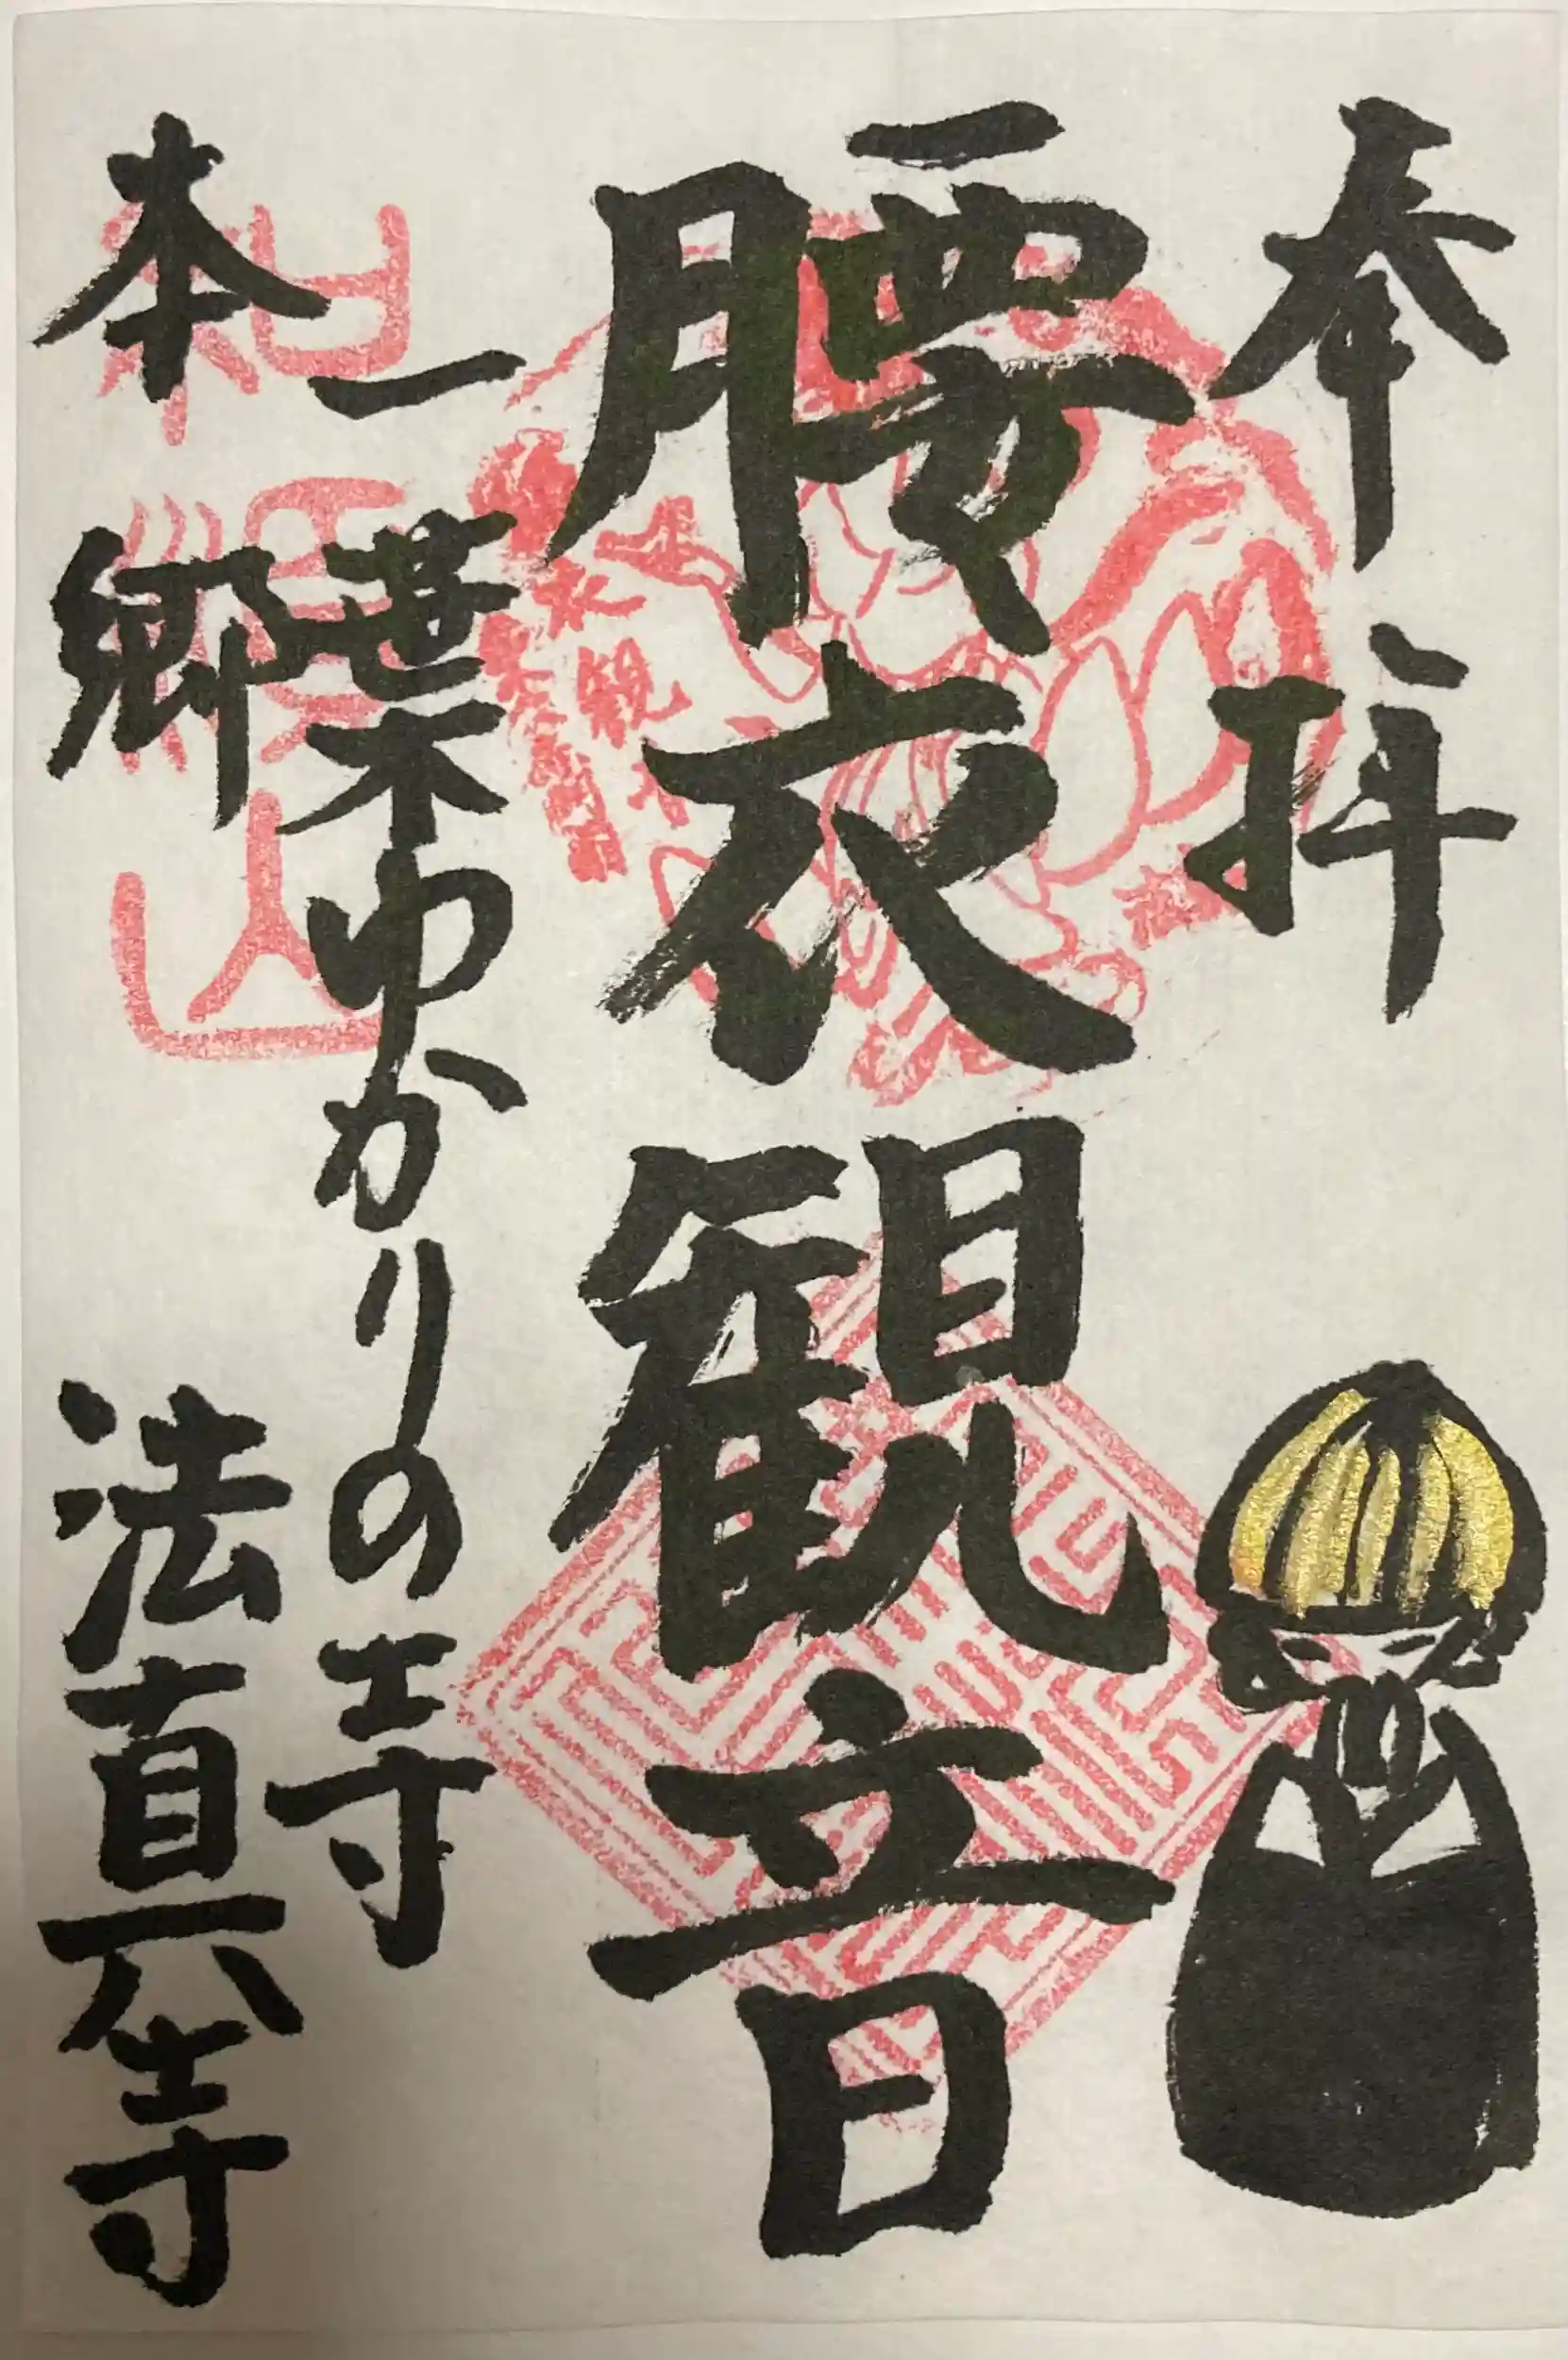 奉拝
腰衣観音
一葉ゆかりの寺
本郷 法真寺